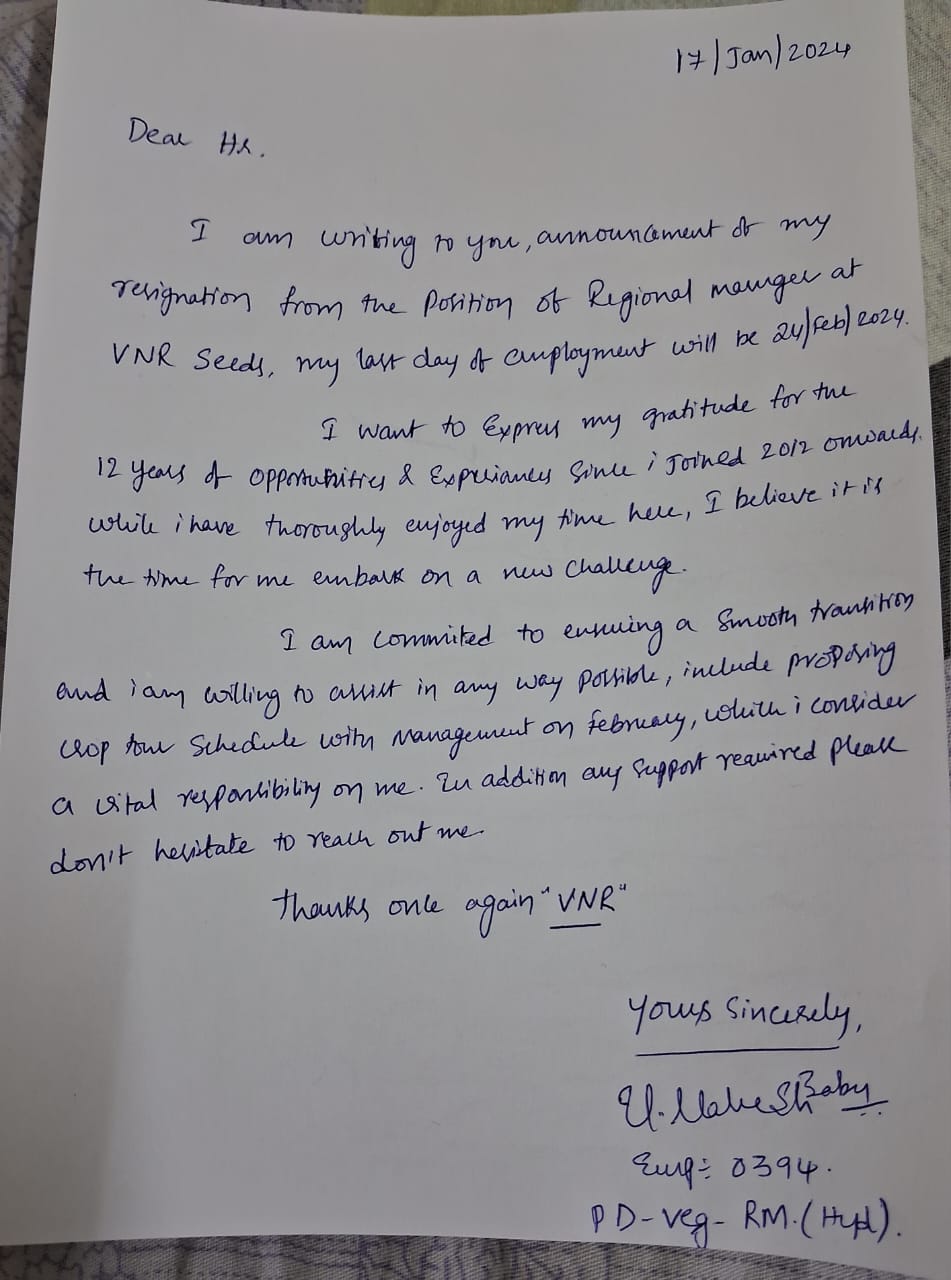 17/Jan/2024
Dear Hr.
I am writing to you, announcement of my
resignation from the Position of Regional manger at
VNR Seeds, my last day of employment will be 24/Feb/2024.
I want to Express my gratitude for the
12 years of opportunities & Expriances Since i Joined 2012 onwards.
while i have thoroughly enjoyed my time here, I believe it is
the time for me embark on a new Challenge.
I am commited to ensuing a Smooth transition
and i am willing to assist in any way possible, include proposing
crop tour Schedule with Management on february, which i consider
a vital responsibility on me. In addition any Support required please
don't hesitate to reach out me.
Thanks once again "VNR"
Yours Sincerely,
U. Mahesh Baby
Emp: 0394.
PD-veg- RM. (Hyd).